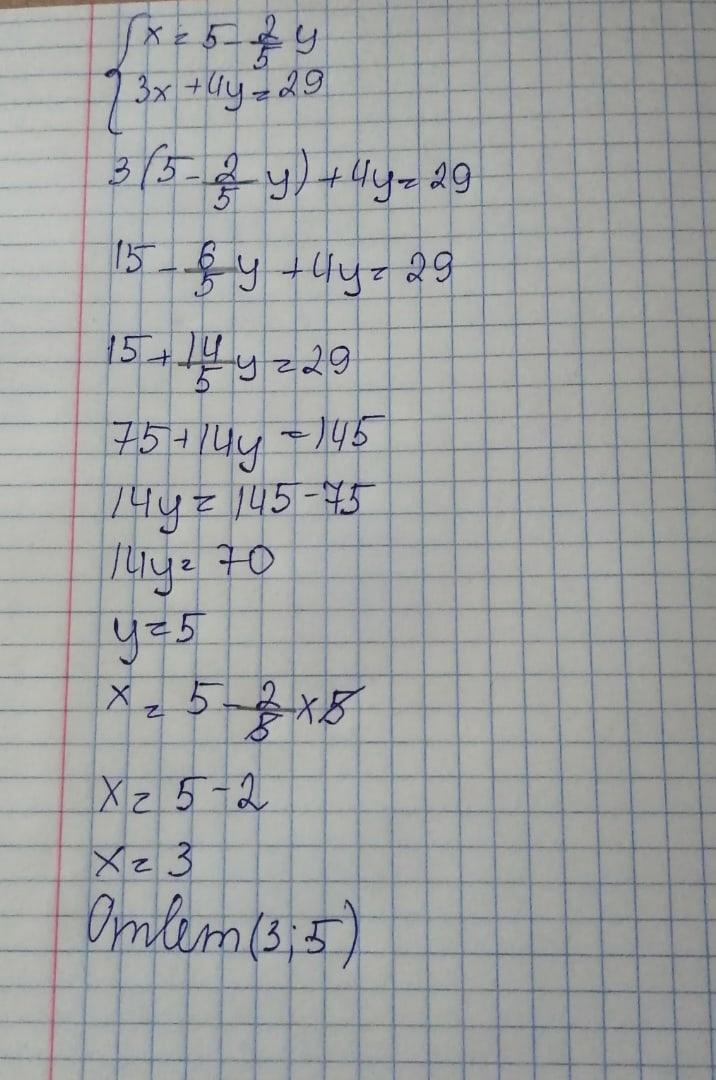 { x = 5 - 2/5 y
3x + 4y = 29
3(5 - 2/5 y) + 4y = 29
15 - 6/5 y + 4y = 29
15 + 14/5 y = 29
75 + 14y = 145
14y = 145 - 75
14y = 70
y = 5
x = 5 - 2/5 × 5
x = 5 - 2
x = 3
Ответ (3; 5)